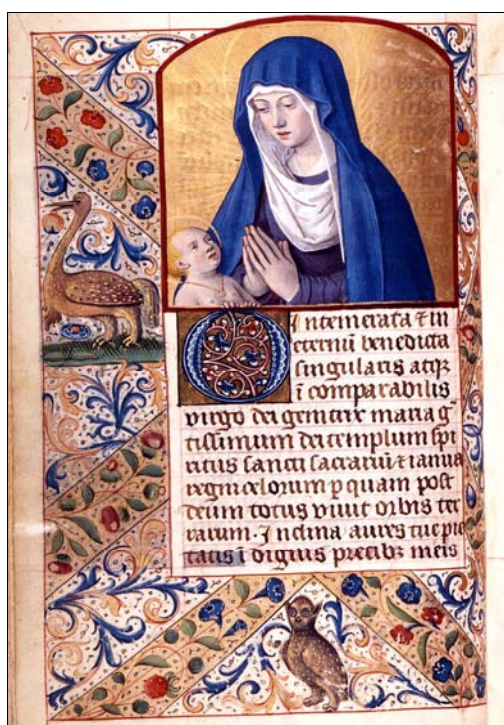 O Intemerata ⁊ in
eternū benedicta
singularis atqꝫ
ī comparabilis
virgo dei genitrix maria g̃
tissimum dei templum spi
ritus sancti sacrariū ⁊ ianua
regni celorum p quam post
deum totus viuit orbis ter
rarum. Inclina aures tue pie
tatis ī dignis precibꝫ meis